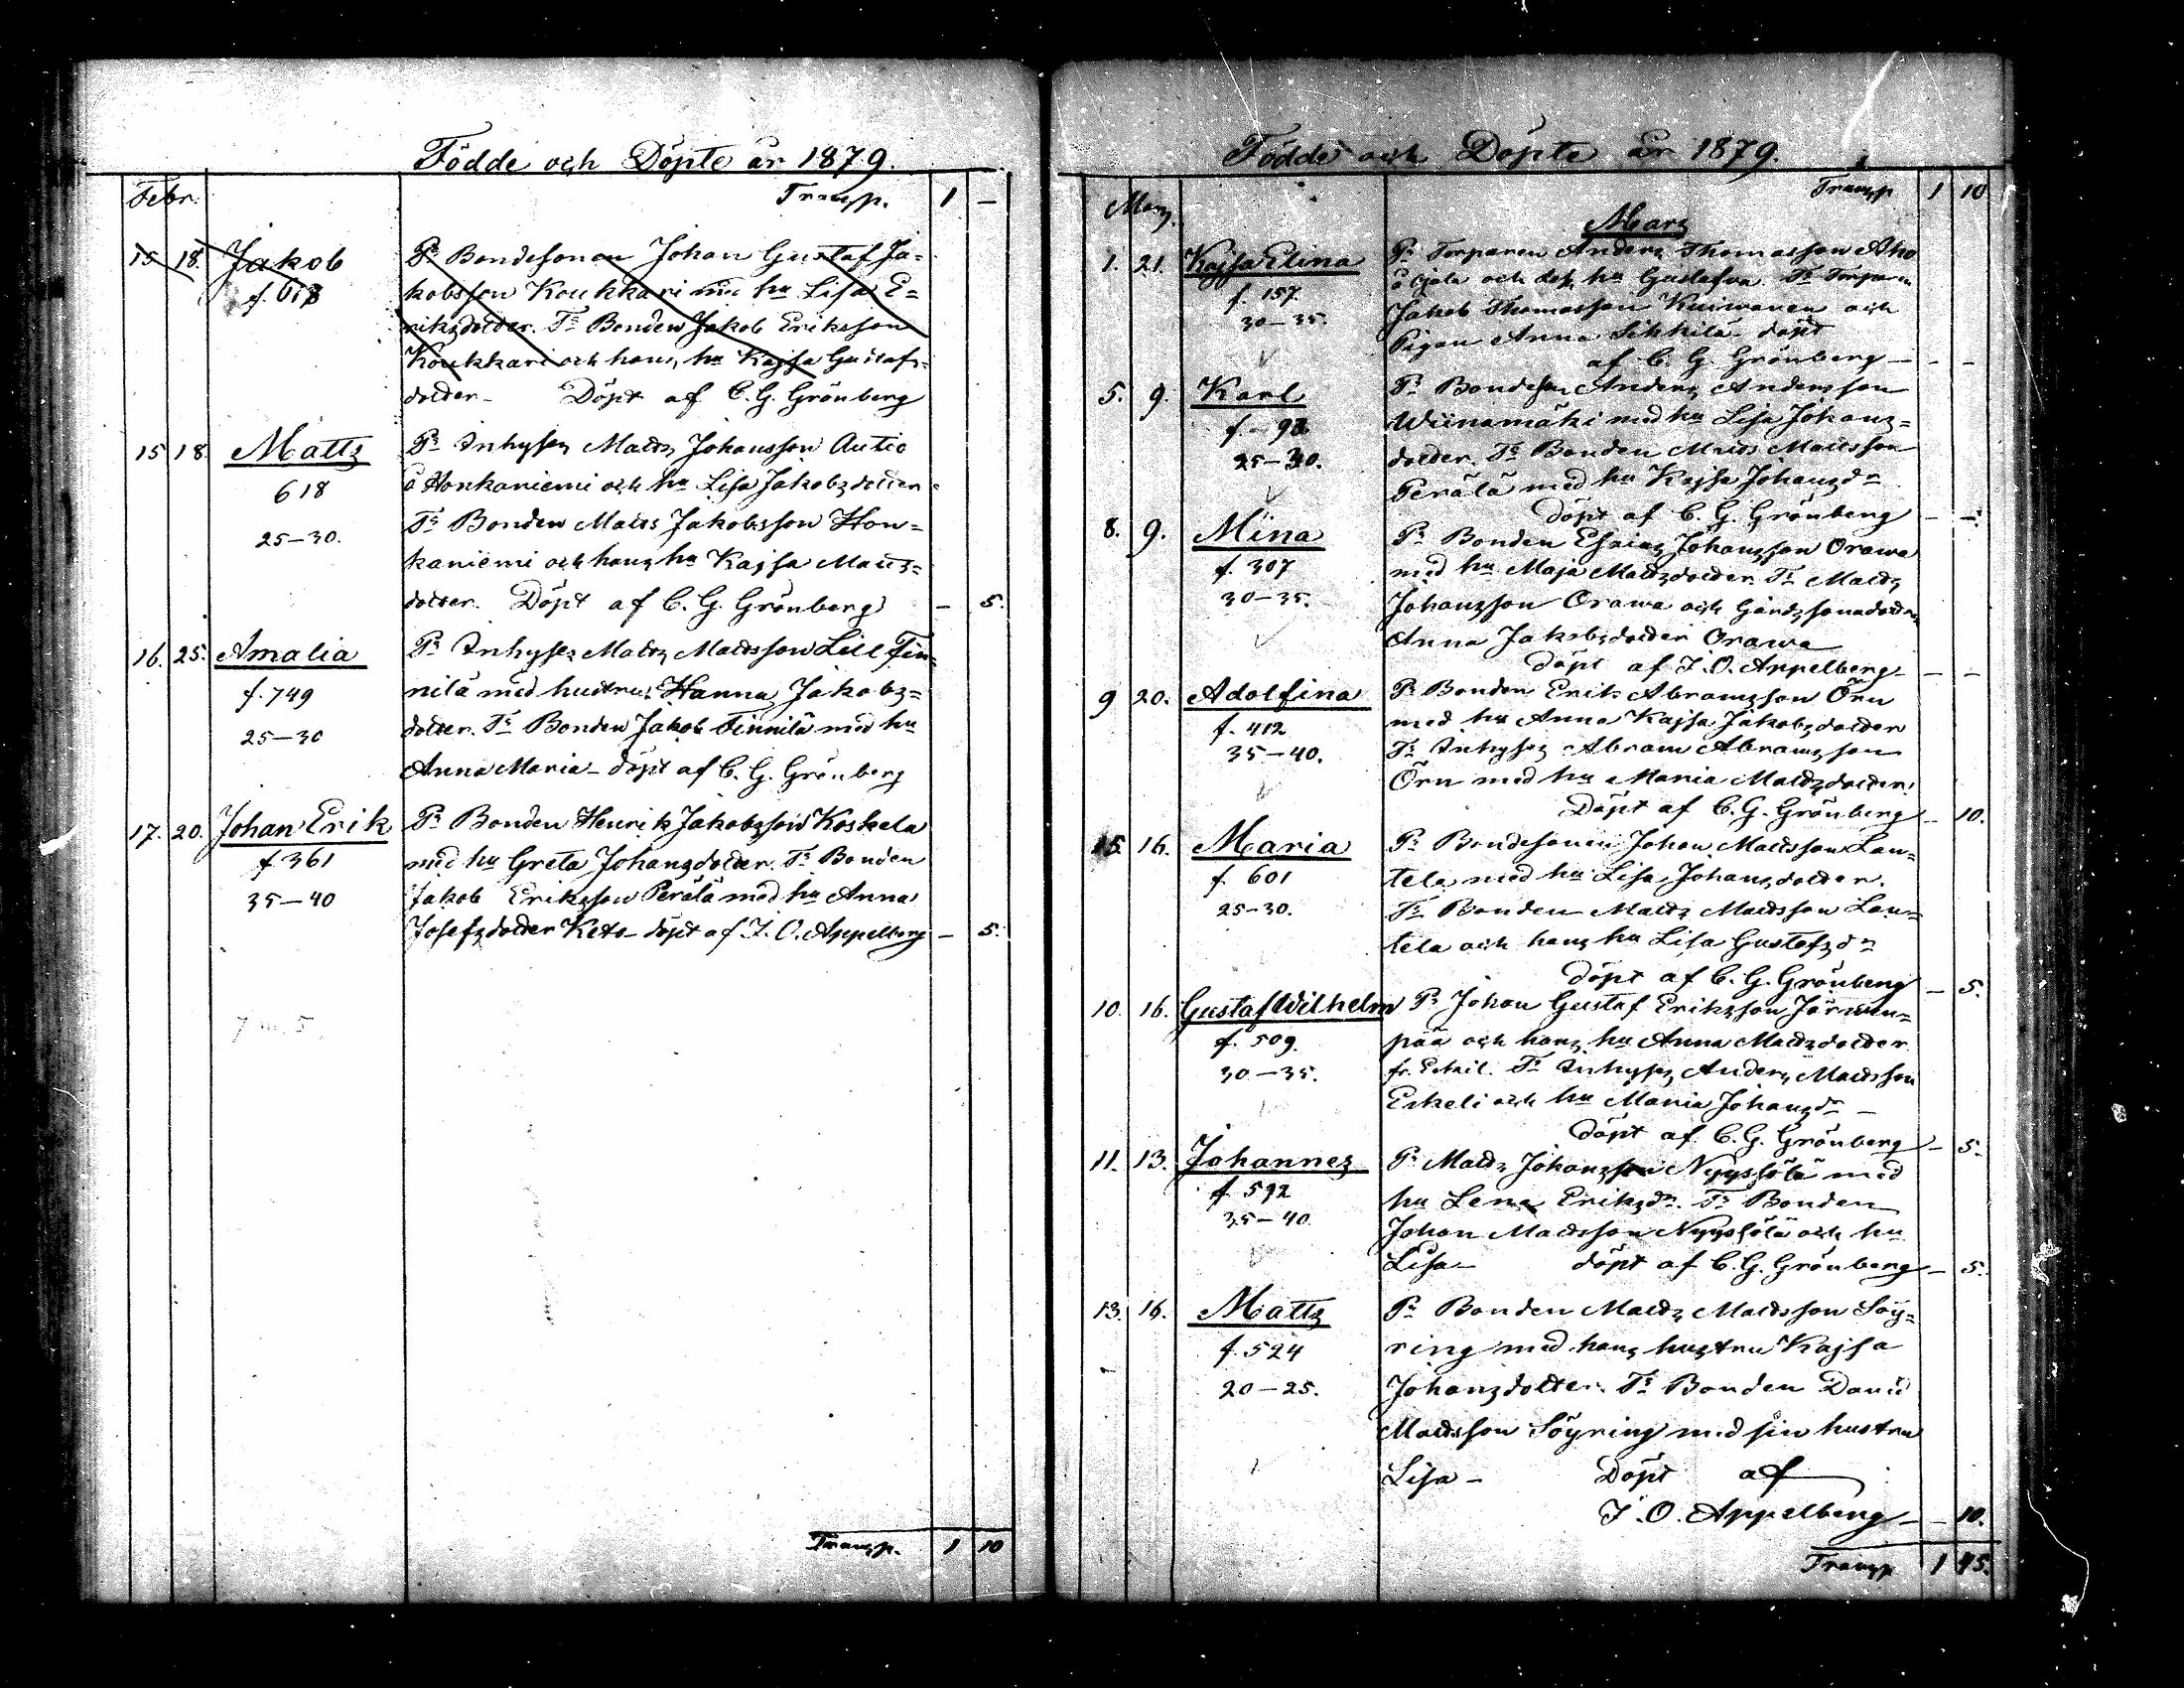 Födde och Döpte år 1879.
Febr. Transp. 1 —
15 18. Jakob Pr Bondesonen Johan Gustaf Ja=
f. 617 kobsson Koukkari med hu Lisa E=
riksdotter. Tr Bonden Jakob Eriksson
Koukkari och hans hu Kajsa Gustafs=
dotter — Döpt af C. G. Grönberg
15 18 Matts Pr Inhyses Matts Johansson Autio
618 å Honkaniemi och hu Lisa Jakobsdotter
25—30. Tr Bonden Matts Jakobsson Hon=
kaniemi och hans hu Kajsa Matts=
dotter. Döpt af C. G. Grönberg — 5.
16. 25. Amalia Pr Inhyses Matts Mattsson Lill Fin=
f. 749 nilä med hustru Hanna Jakobs=
25—30 dotter. Tr Bonden Jakob Finnilä med hu
Anna Maria — döpt af C. G. Grönberg
17. 20. Johan Erik Pr Bonden Henrik Jakobsson Koskela
f. 361 med hu Greta Johansdotter. Tr Bonden
35—40 Jakob Eriksson Perälä med hu Anna
Josefsdotter Keto — döpt af J. O. Appelberg — 5.
Transp. 1 10
Födde och Döpte år 1879.
Mars. Transp. 1 10
Mars
1. 21. Kajsa Elina Pr Torparen Anders Thomasson Aho
f. 157. å och dess hu Gustafva. Tr Torparen
30—35. Jakob Thomasson Kuivanen och
Pigan Anna Sikkilä döpt
af C. G. Grönberg — — —
5. 9. Karl Pr Bondeson Anders Andersson
f. 93 Wiinamäki med hu Lisa Johans=
25—30. dotter. Tr Bonden Matts Mattsson
Perälä med hu Kajsa Johansdr
döpt af C. G. Grönberg — —
8. 9. Mina Pr Bonden Esaias Johansson Orawa
f. 307 med hu Maja Mattsdotter Tr Matts
30—35. Johansson Orawa och Gårdssonadotter
Anna Jakobsdotter Orawa
döpt af J. O. Appelberg — — —
9 20. Adolfina Pr Bonden Erik Abramsson Örn
f. 412 med hu Anna Kajsa Jakobsdotter
35—40. Tr Inhyses Abram Abramsson
Örn med hu Maria Mattsdotter.
Döpt af C. G. Grönberg — 10.
15. 16. Maria Pr Bondesonen Johan Mattsson Lau=
f. 601 tela med hu Lisa Johansdotter.
25—30. Tr Bonden Matts Mattsson Lau=
tela och hans hu Lisa Gustafsdr
döpt af C. G. Grönberg — 5.
10. 16. Gustaf Wilhelm Pr Johan Gustaf Eriksson Järwen=
f. 509. pää och hans hu Anna Mattsdotter
30—35. fr. Tr Inhyses Anders Mattsson
Eskeli och hu Maria Johansdr —
döpt af C. G. Grönberg — 5.
11. 13. Johannes Pr Matts Johansson Nyyssölä med
f. 592 hu Lena Eriksdr. Tr Bonden
35—40. Johan Mattsson Nyyssölä och hu
Lisa — döpt af C. G. Grönberg — 5.
13. 16. Matts Pr Bonden Matts Mattsson Söy=
f. 524 ring med hans hustru Kajsa
20—25. Johansdotter. Tr Bonden David
Mattsson Söyring med sin hustru
Lisa — Döpt af
J. O. Appelberg — — 10.
Transp 1 45.